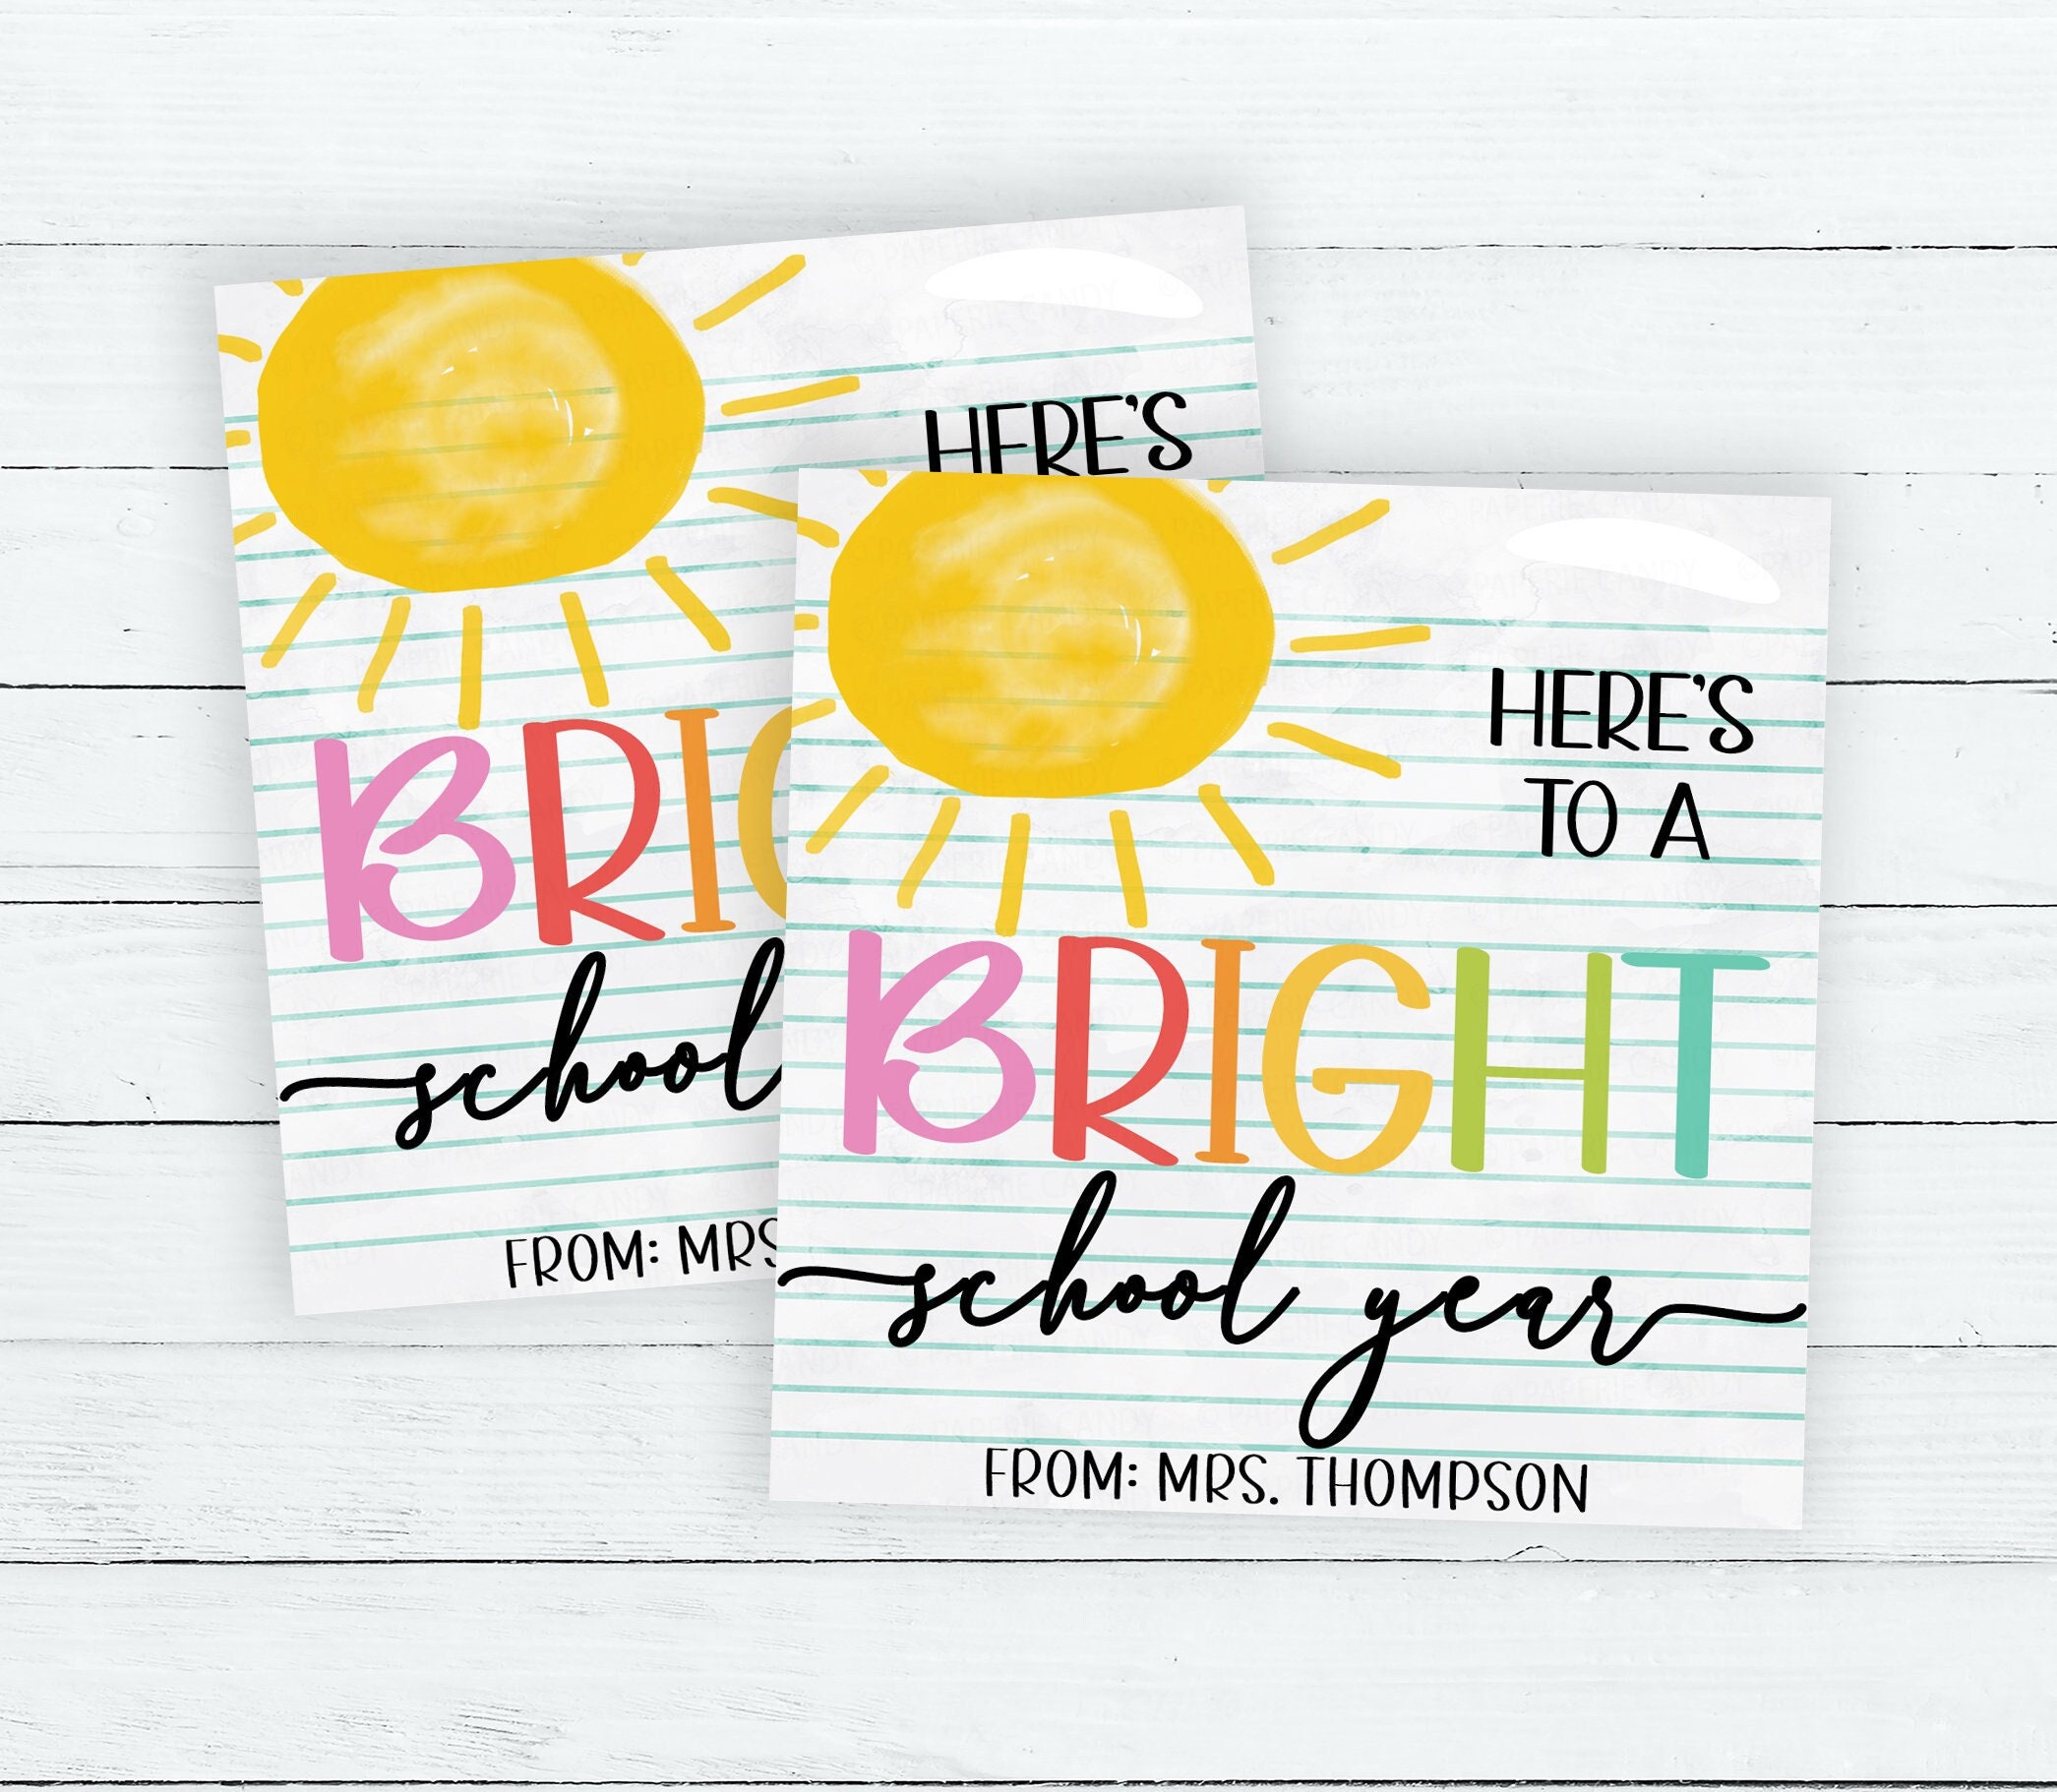 HERE'S
BRIG
school
FROM: MRS
HERE'S
TO A
BRIGHT
school year
FROM: MRS. THOMPSON
PAPERIE CANDY